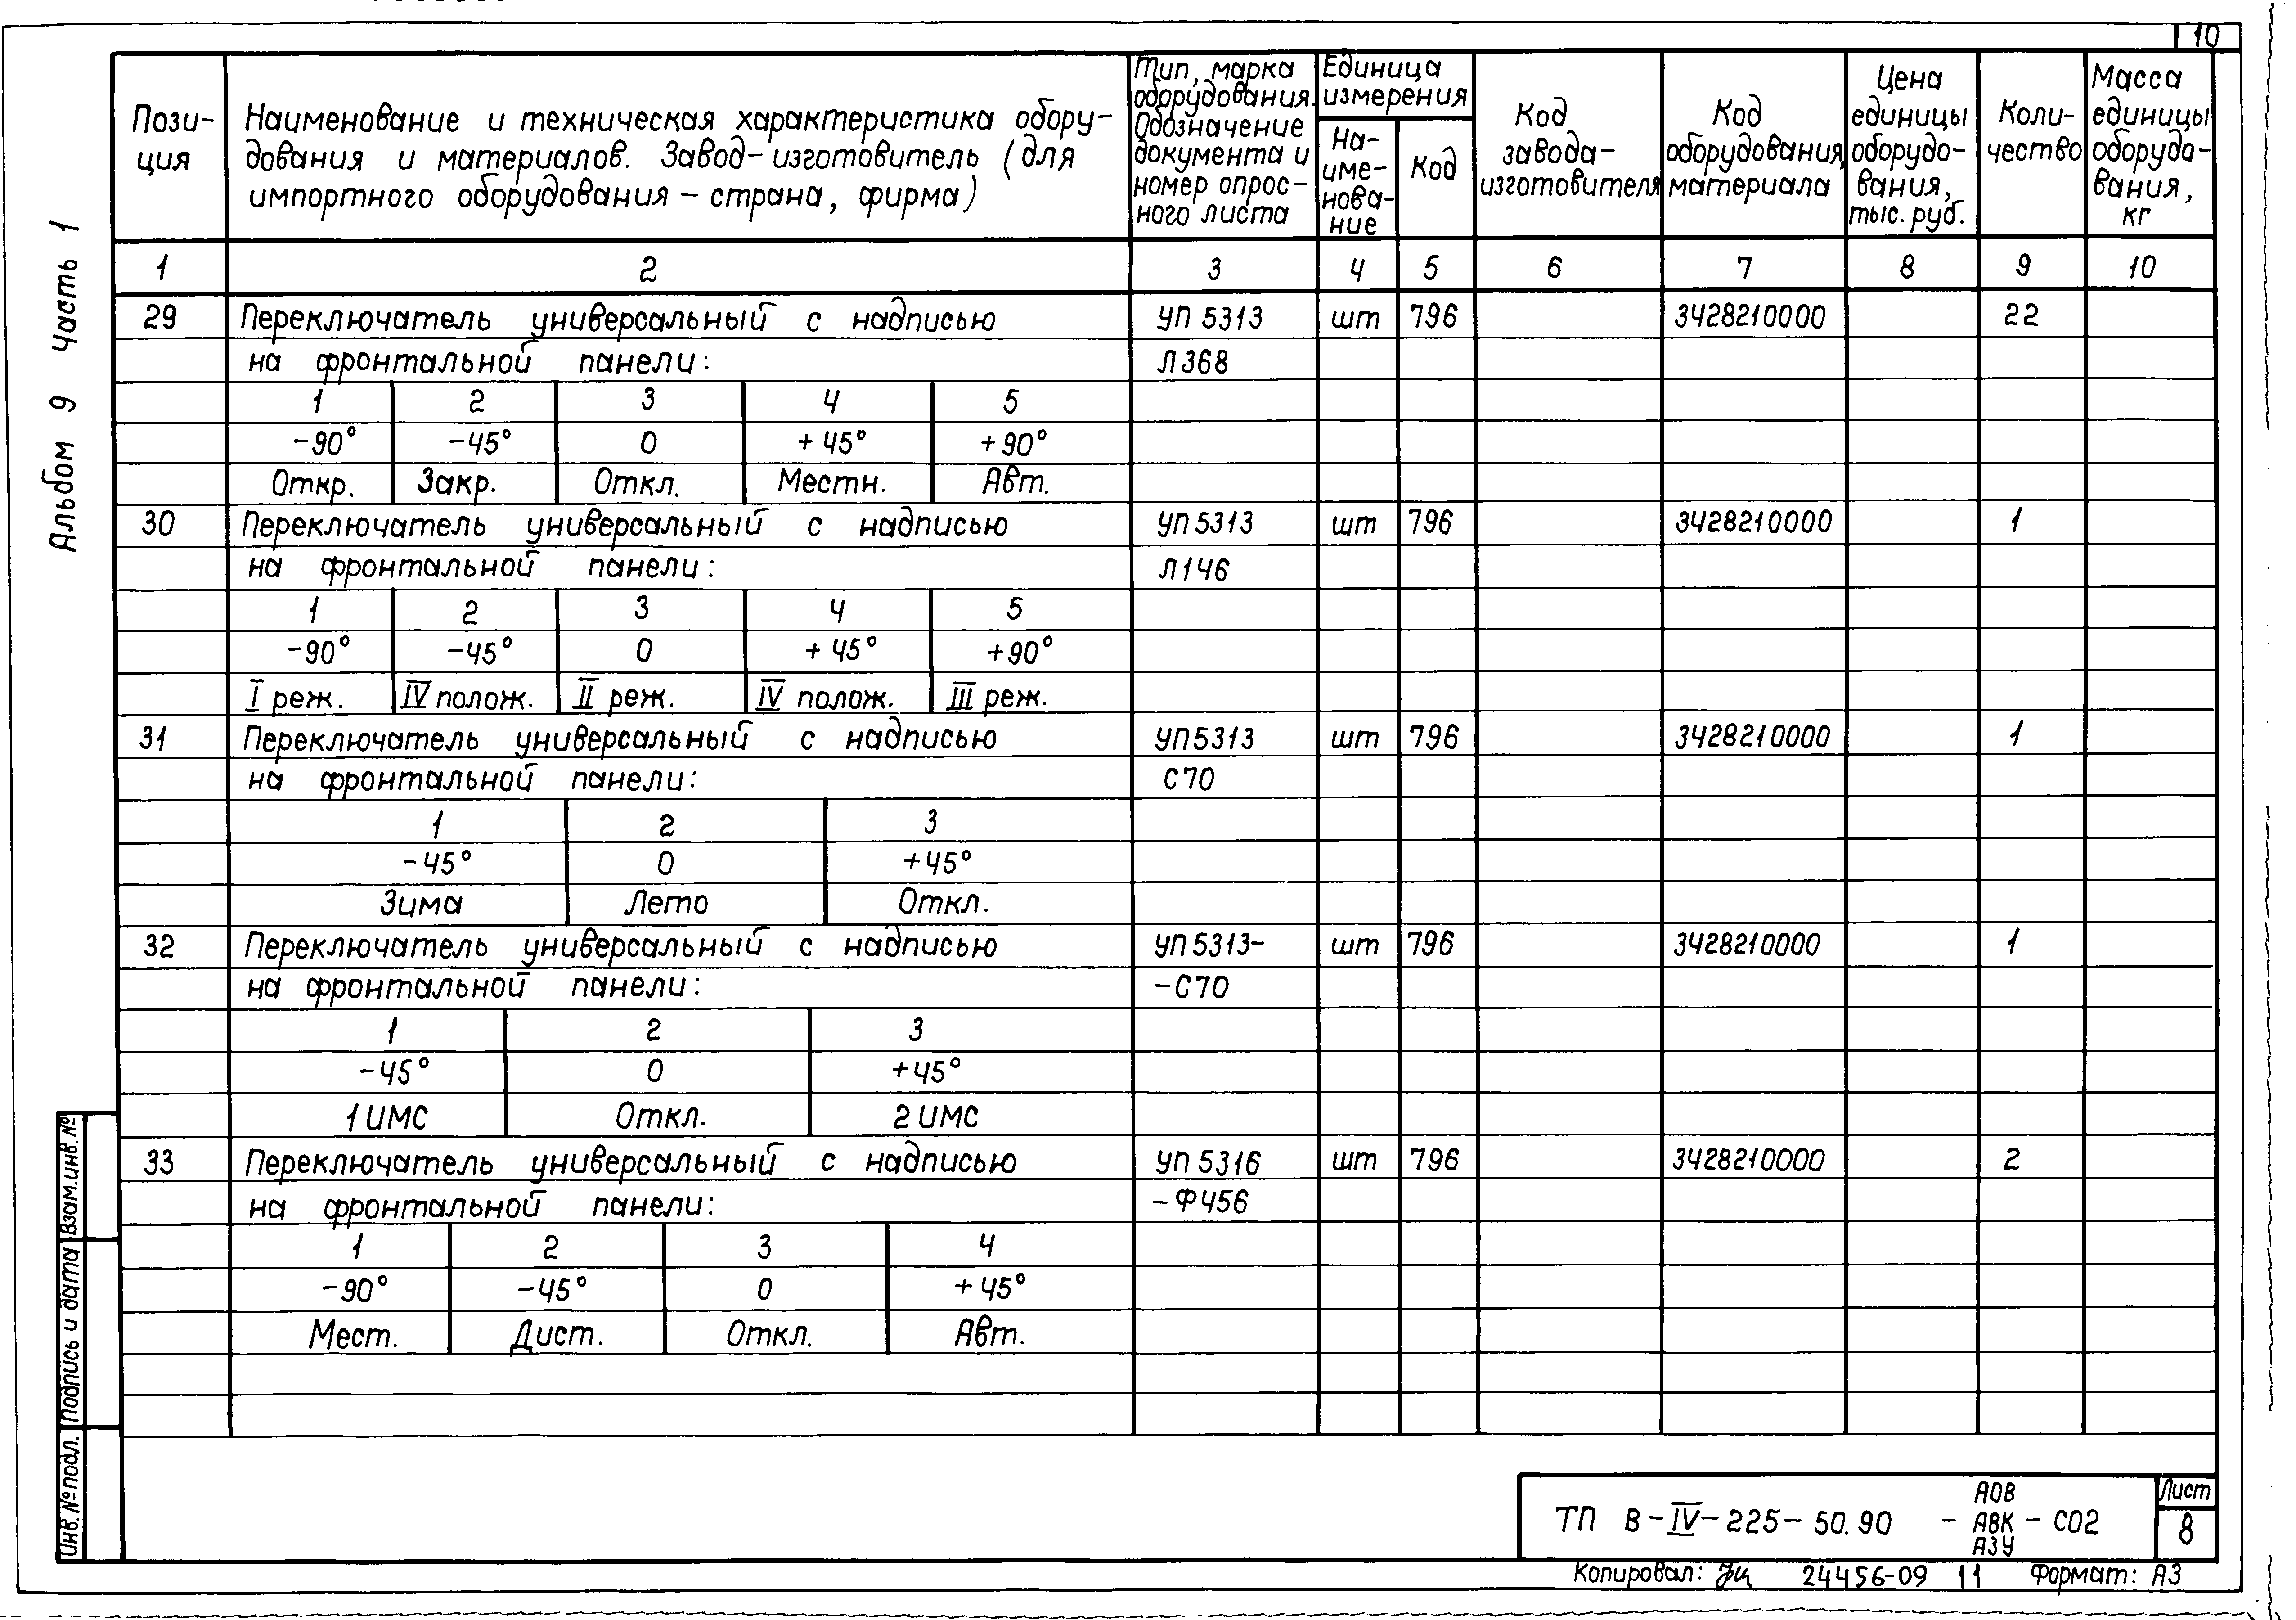 10
Альбом 9 Часть 1
Пози-
ция
Наименование и техническая характеристика обору-
дования и материалов. Завод-изготовитель (для
импортного оборудования – страна, фирма)
Тип, марка
оборудования.
Обозначение
документа и
номер опрос-
ного листа
Единица
измерения
На-
име-
нова-
ние
Код
Код
завода-
изготовителя
Код
оборудования,
материала
Цена
единицы
оборудо-
вания,
тыс. руб.
Коли-
чество
Масса
единицы
оборудо-
вания,
кг
1 2 3 4 5 6 7 8 9 10
29 Переключатель универсальный с надписью УП 5313 шт 796 3428210000 22
на фронтальной панели: Л368
1 2 3 4 5
-90° -45° 0 +45° +90°
Откр. Закр. Откл. Местн. Авт.
30 Переключатель универсальный с надписью УП 5313 шт 796 3428210000 1
на фронтальной панели: Л146
1 2 3 4 5
-90° -45° 0 +45° +90°
I реж. IV полож. II реж. IV полож. III реж.
31 Переключатель универсальный с надписью УП5313 шт 796 3428210000 1
на фронтальной панели: С70
1 2 3
-45° 0 +45°
Зима Лето Откл.
32 Переключатель универсальный с надписью УП 5313- шт 796 3428210000 1
на фронтальной панели: -С70
1 2 3
-45° 0 +45°
1 ИМС Откл. 2 ИМС
33 Переключатель универсальный с надписью УП 5316 шт 796 3428210000 2
на фронтальной панели: -Ф456
1 2 3 4
-90° -45° 0 +45°
Мест. Дист. Откл. Авт.
Взам.инв.№
Подпись и дата
Инв.№подл.
ТП В-IV-225-50.90 - АОВ АВК АЗУ - СО2
Лист
8
Копировал: 24456-09 11 Формат: А3